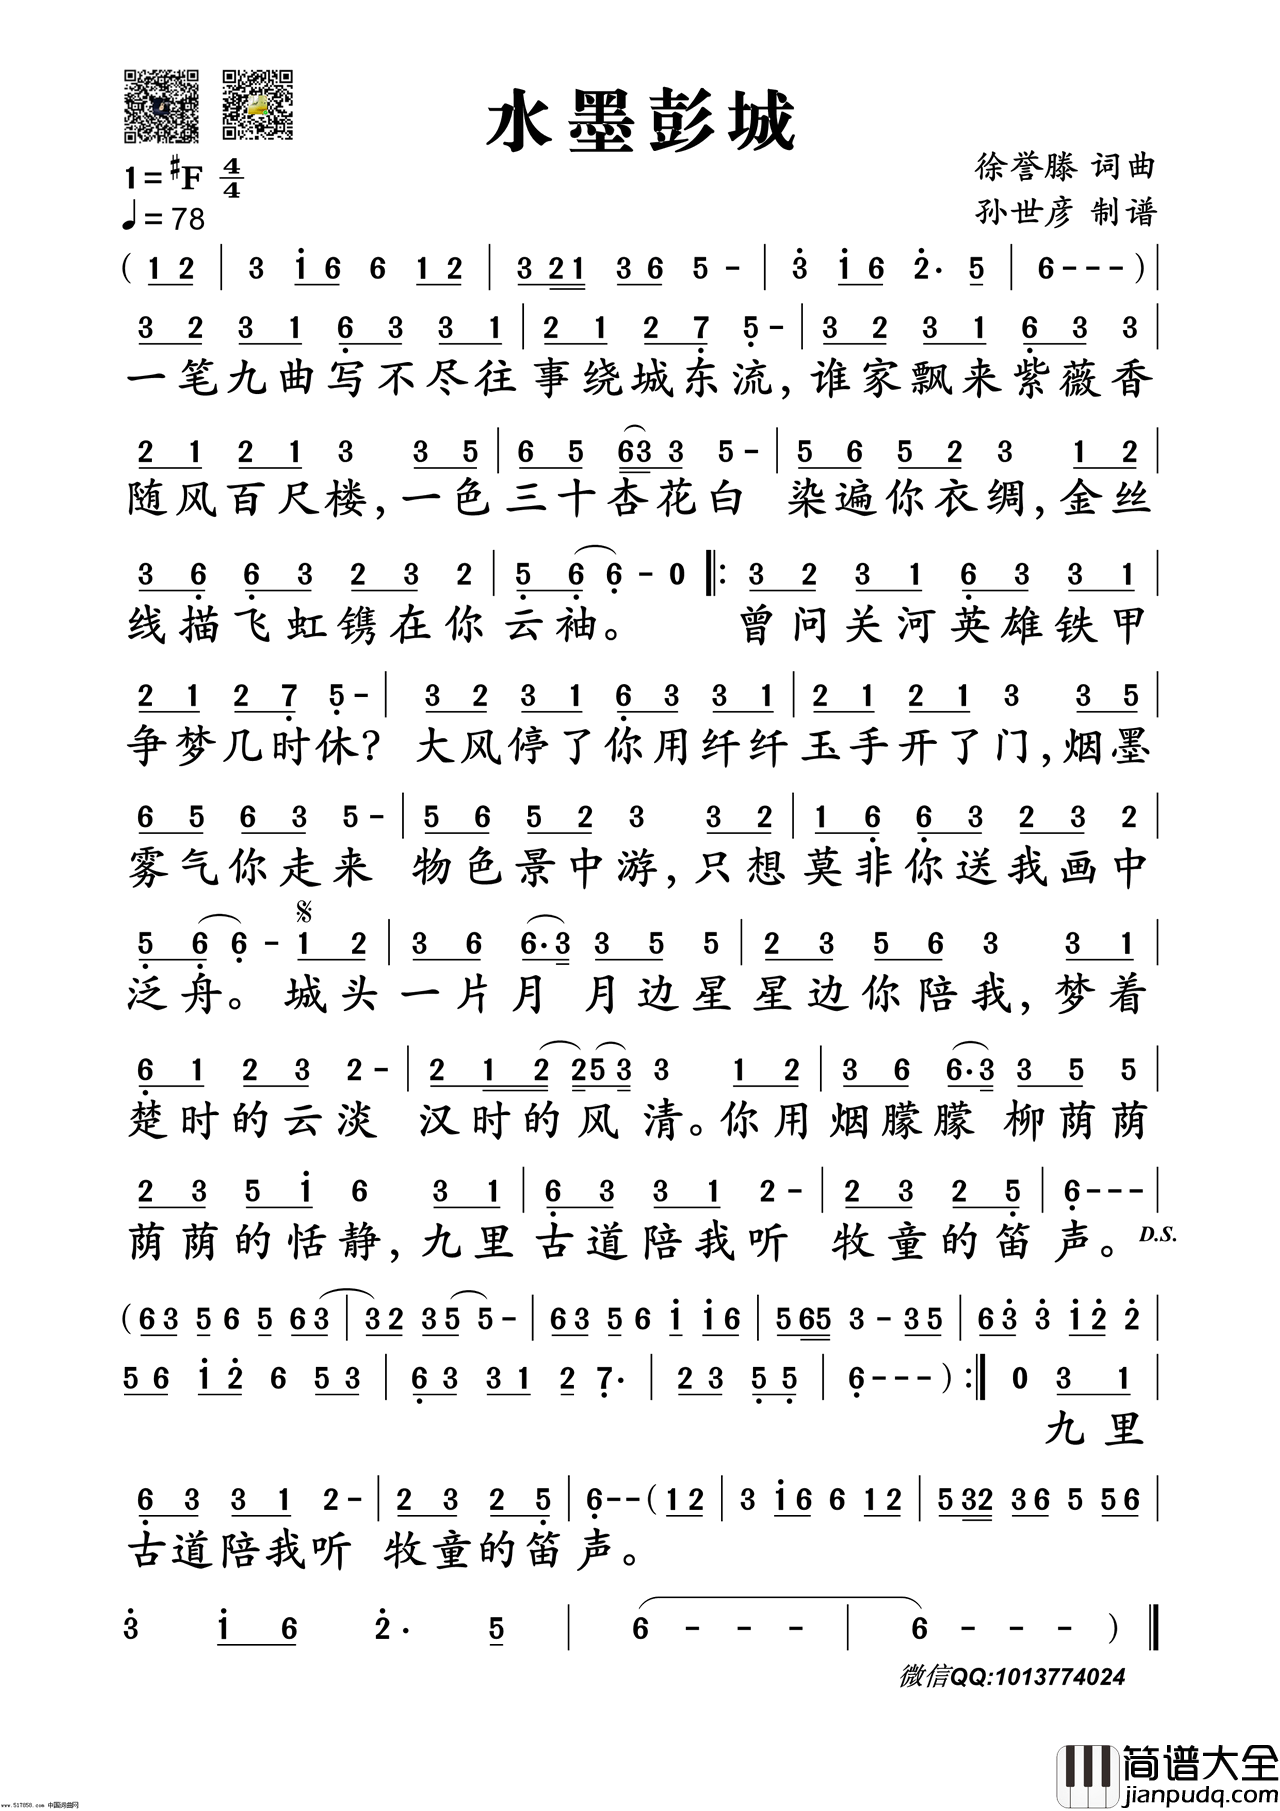 水墨彭城
1=#F 4/4
♩=78
徐誉滕 词曲
孙世彦 制谱
( 1 2 | 3 1 6 6 1 2 | 3 2 1 3 6 5 - | 3 1 6 2 . 5 | 6 - - - ) |
3 2 3 1 6 3 3 1 | 2 1 2 7 5 - | 3 2 3 1 6 3 3
一笔九曲写不尽往事绕城东流,谁家飘来紫薇香
2 1 2 1 3 3 5 | 6 5 6 3 3 5 - | 5 6 5 2 3 1 2 |
随风百尺楼,一色三十杏花白 染遍你衣绸,金丝
3 6 6 3 2 3 2 | 5 6 6 - 0 |: 3 2 3 1 6 3 3 1 |
线描飞虹镌在你云袖。 曾问关河英雄铁甲
2 1 2 7 5 - | 3 2 3 1 6 3 3 1 | 2 1 2 1 3 3 5 |
争梦几时休? 大风停了你用纤纤玉手开了门,烟墨
6 5 6 3 5 - | 5 6 5 2 3 3 2 | 1 6 6 3 2 3 2 |
雾气你走来 物色景中游,只想莫非你送我画中
5 6 6 - 1 2 | 3 6 6 . 3 3 5 5 | 2 3 5 6 3 3 1 |
泛舟。 城头一片月 月边星星边你陪我,梦着
6 1 2 3 2 - | 2 1 2 2 5 3 3 1 2 | 3 6 6 . 3 3 5 5 |
楚时的云淡 汉时的风清。你用烟朦朦 柳荫荫
2 3 5 1 6 3 1 | 6 3 3 1 2 - | 2 3 2 5 | 6 - - - |
荫荫的恬静,九里古道陪我听 牧童的笛声。 D.S.
( 6 3 5 6 5 6 3 | 3 2 3 5 5 - | 6 3 5 6 1 1 6 | 5 6 5 3 - 3 5 | 6 3 3 1 2 2 |
5 6 1 2 6 5 3 | 6 3 3 1 2 7 . | 2 3 5 5 | 6 - - - ) :| 0 3 1 |
九里
6 3 3 1 2 - | 2 3 2 5 | 6 - - ( 1 2 | 3 1 6 6 1 2 | 5 3 2 3 6 5 5 6 |
古道陪我听 牧童的笛声。
3 1 6 2 . 5 | 6 - - - | 6 - - - ) ‖
微信QQ:1013774024
www.517858.com 中国词曲网
简谱大全
jianpudq.com